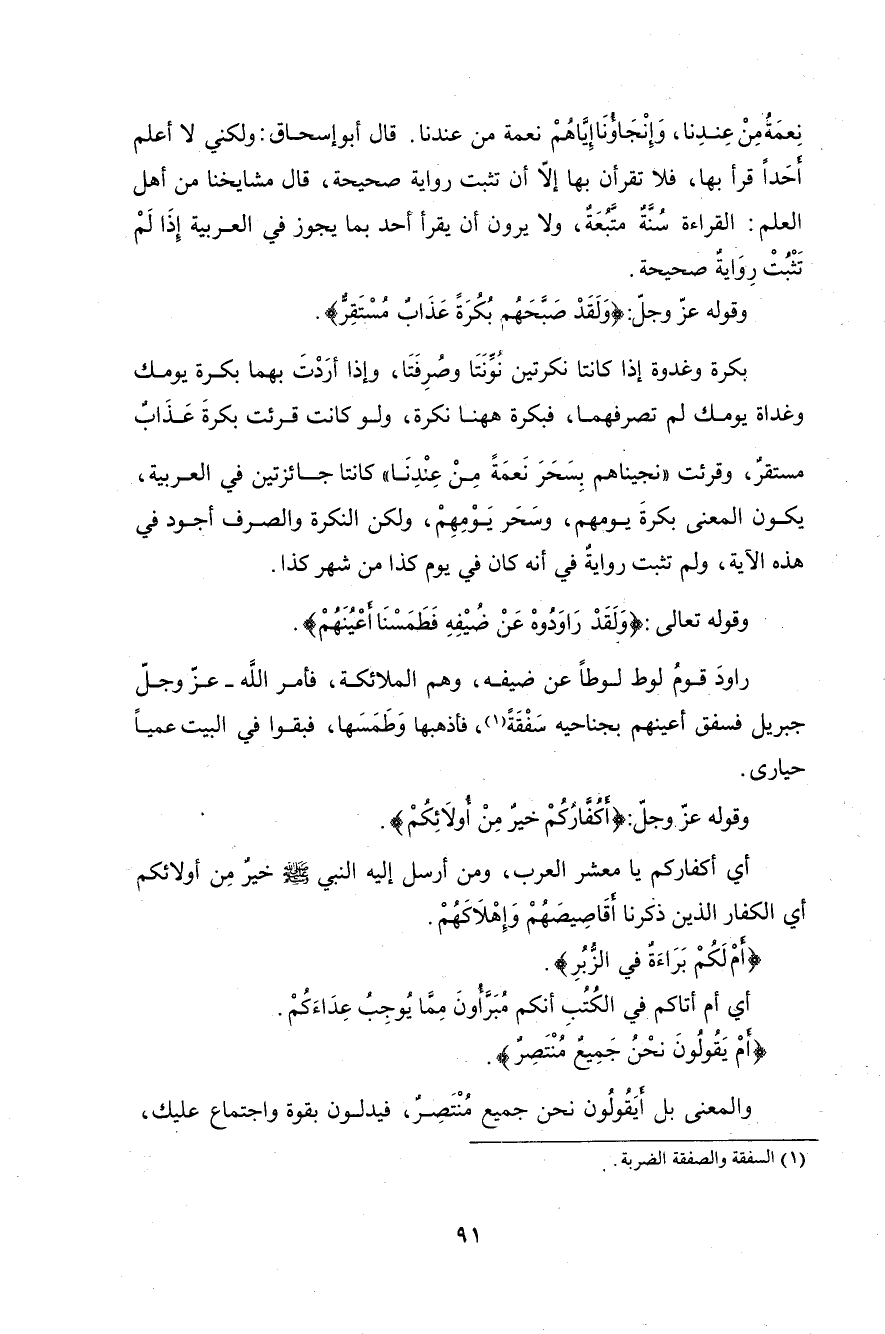 نِعمَةُ مِنْ عِنـدِنا، وَإِنْجَاؤُنَا إِيَّاهُمْ نعمة من عندنا. قال أبو إسحـاق: ولكني لا أعلم
أَحَداً قرأ بها، فلا تقرأن بها إلاّ أن تثبت رواية صحيحة، قال مشايخنا من أهل
العلم: القراءة سُنَّةٌ متَّبُعَةٌ، ولا يرون أن يقرأ أحد بما يجوز في العـربية إِذَا لَمْ
تَثْبُتْ رِوَايةٌ صحيحة.
وقوله عزّ وجلّ: ﴿وَلَقَدْ صَبَّحَهُم بُكُرَةً عَذَابٌ مُسْتَقِرٌّ﴾.
بكرة وغدوة إذا كانتا نكرتين نُوِّنَتَا وصُرِفَتَا، وإذا أرَدْتَ بهما بكـرة يومـك
وغداة يومـك لم تصرفهمـا، فبكرة ههنـا نكرة، ولـو كانت قـرئت بكرةَ عَـذَابٌ
مستقرٌ، وقرئت «نجيناهم بِسَحَرَ نَعمَةً مِـنْ عِنْدِنَـا» كانتا جـائزتين في العربية،
يكـون المعنى بكرةَ يـومهم، وسَحَر يَـوْمِهِمْ، ولكن النكرة والصـرف أجـود في
هذه الآية، ولم تثبت روايةٌ في أنه كان في يوم كذا من شهر كذا.
وقوله تعالى: ﴿وَلَقَدْ رَاوَدُوهْ عَنْ ضُيْفِهِ فَطَمَسْنَا أَعْيُنَهُمْ﴾.
راودَ قـومُ لوط لـوطاً عن ضيفـه، وهم الملائكـة، فأمـر اللَّه ـ عـزّ وجلّ
جبريل فسفق أعينهم بجناحيه سَفْقَةً(١)، فأذهبها وَطَمَسَها، فبقـوا في البيت عميـاً
حيارى.
وقوله عزّ وجلّ: ﴿أَكُفَّارُكُمْ خيرٌ مِنْ أُولَائِكُمْ﴾.
أي أكفاركم يا معشر العرب، ومن أرسل إليه النبي ﷺ خيرٌ مِن أولائكم
أي الكفار الذين ذكرنا أَقَاصِيصَهُمْ وَإِهْلَاكَهُمْ.
﴿أَمْ لَكُمْ بَرَاءَةٌ في الزُّبُرِ﴾.
أي أم أتاكم في الكُتُبِ أنكم مُبَرَّأُونَ مِمَّا يُوجِبُ عِدَاءَكُمْ.
﴿أَمْ يَقُولُونَ نحْنُ جَمِيعٌ مُنْتَصِرٌ﴾.
والمعنى بل أَيَقُولُون نحن جميع مُنْتَصِـرٌ، فيدلـون بقوة واجتماع عليك،
(١) السفقة والصفقة الضربة.
٩١